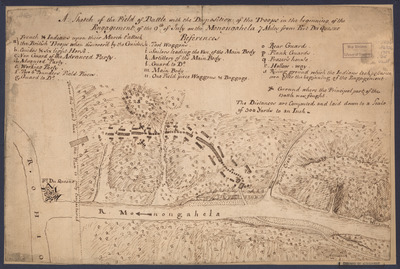 A Sketch of the Field of Battle with the Disposition of the Troops in the beginning of the
Engagement of the 9th of July on the Monongahela 7 Miles from Fort Du Quesne
References
a French & Indians upon their March
b the British Troops when discover'd by the
c Guides & six Light Horse
d Van Guard of the Advanced Party
e Advanced Party
f Working Party
g Two Pounder Field Pieces
h Guard to Do
i Tool Waggons
k Sailors leading the Van of the Main Body
l Artillery of the Main Body
Guard to Do
m Main Body
n One Field piece Waggons & Baggage
o Rear Guard
p Flank Guards
q Frazer's house
r Hollow way
s Rising ground where the Indians
soon after the beginning of the Engagement
Ground where the Principal part of the
Battle was fought
The Distances are Computed and laid down to a Scale
of 200 Yards to an Inch
Ft Du Quesne
R. Monongahela
OHIO R.